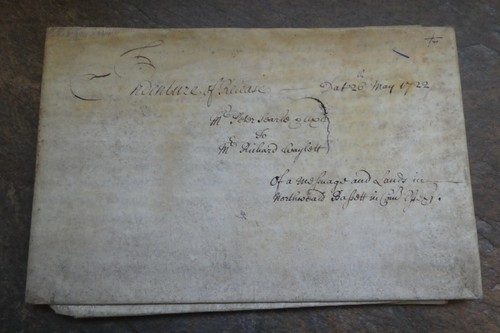 Indenture of Release — Dat. 2d. May 1722
Mr. Peter Searle & ux.
to
Mr. Richard Baylott
Of a Messuage and Lands in
Northweald Bassett in Com Essex.